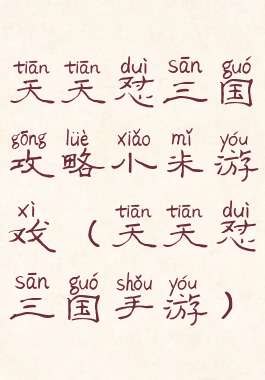 tiān tiān duì sān guó
天天怼三国
gōng lüè xiǎo mǐ yóu
攻略小米游
xì tiān tiān duì
戏（天天怼
sān guó shǒu yóu
三国手游）